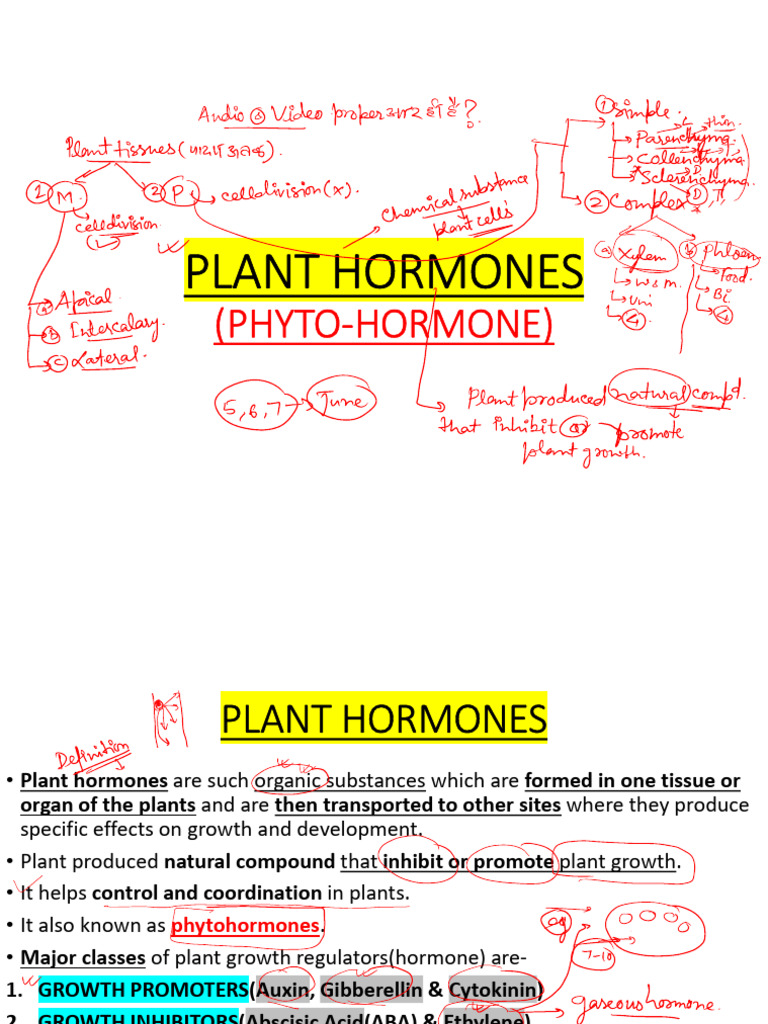 Audio & Video proper आ रहा है ?
Plant tissues (पादप ऊतक).
① M
② P → celldivision (x).
celldivision
(✓)
ⓐ Apical
ⓑ Intercalary
ⓒ Lateral.
Chemical substance
plant cells
① Simple.
Parenchyma → thin
Collenchyma
Sclerenchyma
② Complex
ⓐ Xylem
W & M.
Uni
④
ⓑ Phloem
Food
Bi
④
PLANT HORMONES
(PHYTO-HORMONE)
5, 6, 7 → June
Plant produced natural compd.
that inhibit or promote
plant growth.
PLANT HORMONES
Definition
• Plant hormones are such organic substances which are formed in one tissue or
organ of the plants and are then transported to other sites where they produce
specific effects on growth and development.
• Plant produced natural compound that inhibit or promote plant growth.
• It helps control and coordination in plants.
• It also known as phytohormones.
eg
7-10
• Major classes of plant growth regulators(hormone) are-
1. GROWTH PROMOTERS(Auxin, Gibberellin & Cytokinin)
gaseous hormone.
2. GROWTH INHIBITORS(Abscisic Acid(ABA) & Ethylene)